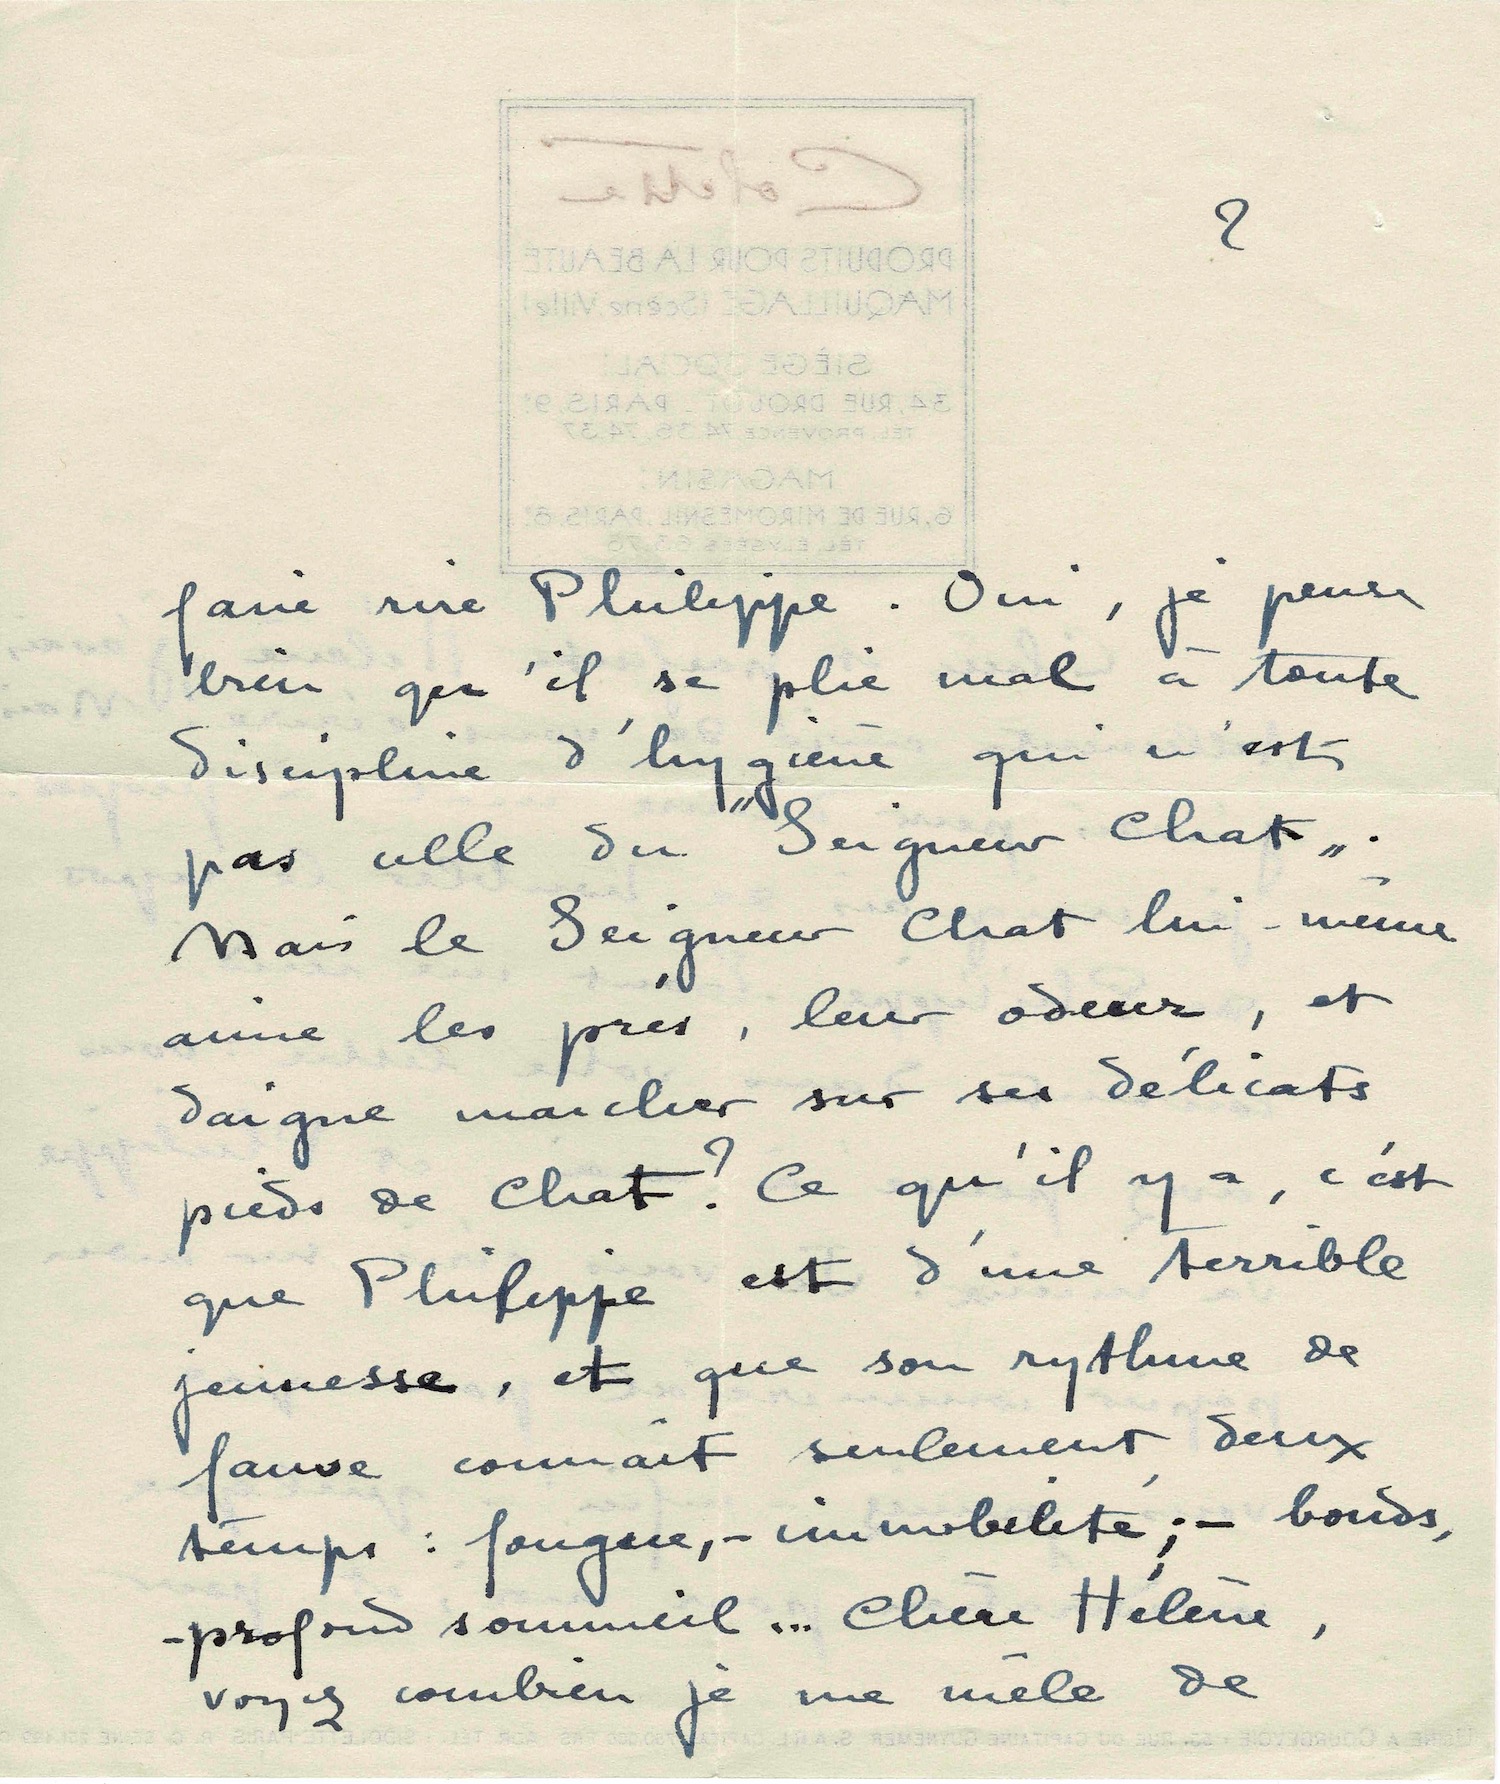 Colette
PRODUITS POUR LA BEAUTÉ
MAQUILLAGE (Scène, Ville)
SIÈGE SOCIAL:
34, RUE DROUOT _ PARIS. 9e
TÉL. PROVENCE 74.36, 74.37
MAGASIN:
6, RUE DE MIROMESNIL. PARIS. 8e
TÉL. ELYSÉES
2
faire rire Philippe. Oui, je pense
bien qu'il se plie mal à toute
discipline d'hygiène qui n'est
pas celle du "Seigneur Chat".
Mais le Seigneur Chat lui-même
aime les prés, leur odeur, et
daigne marcher sur ses délicats
pieds de Chat? Ce qu'il y a, c'est
que Philippe est d'une terrible
jeunesse, et que son rythme de
fauve connaît seulement deux
temps : fougue, - immobilité ; - bonds,
- profond sommeil... Chère Hélène,
voyez combien je me mêle de
USINE A COURBEVOIE : 53, RUE DU CAPITAINE GUYNEMER S.A.R.L. CAPITAL 750.000 FRS ADR. TÉL. SIDOLETTE PARIS R. C. SEINE